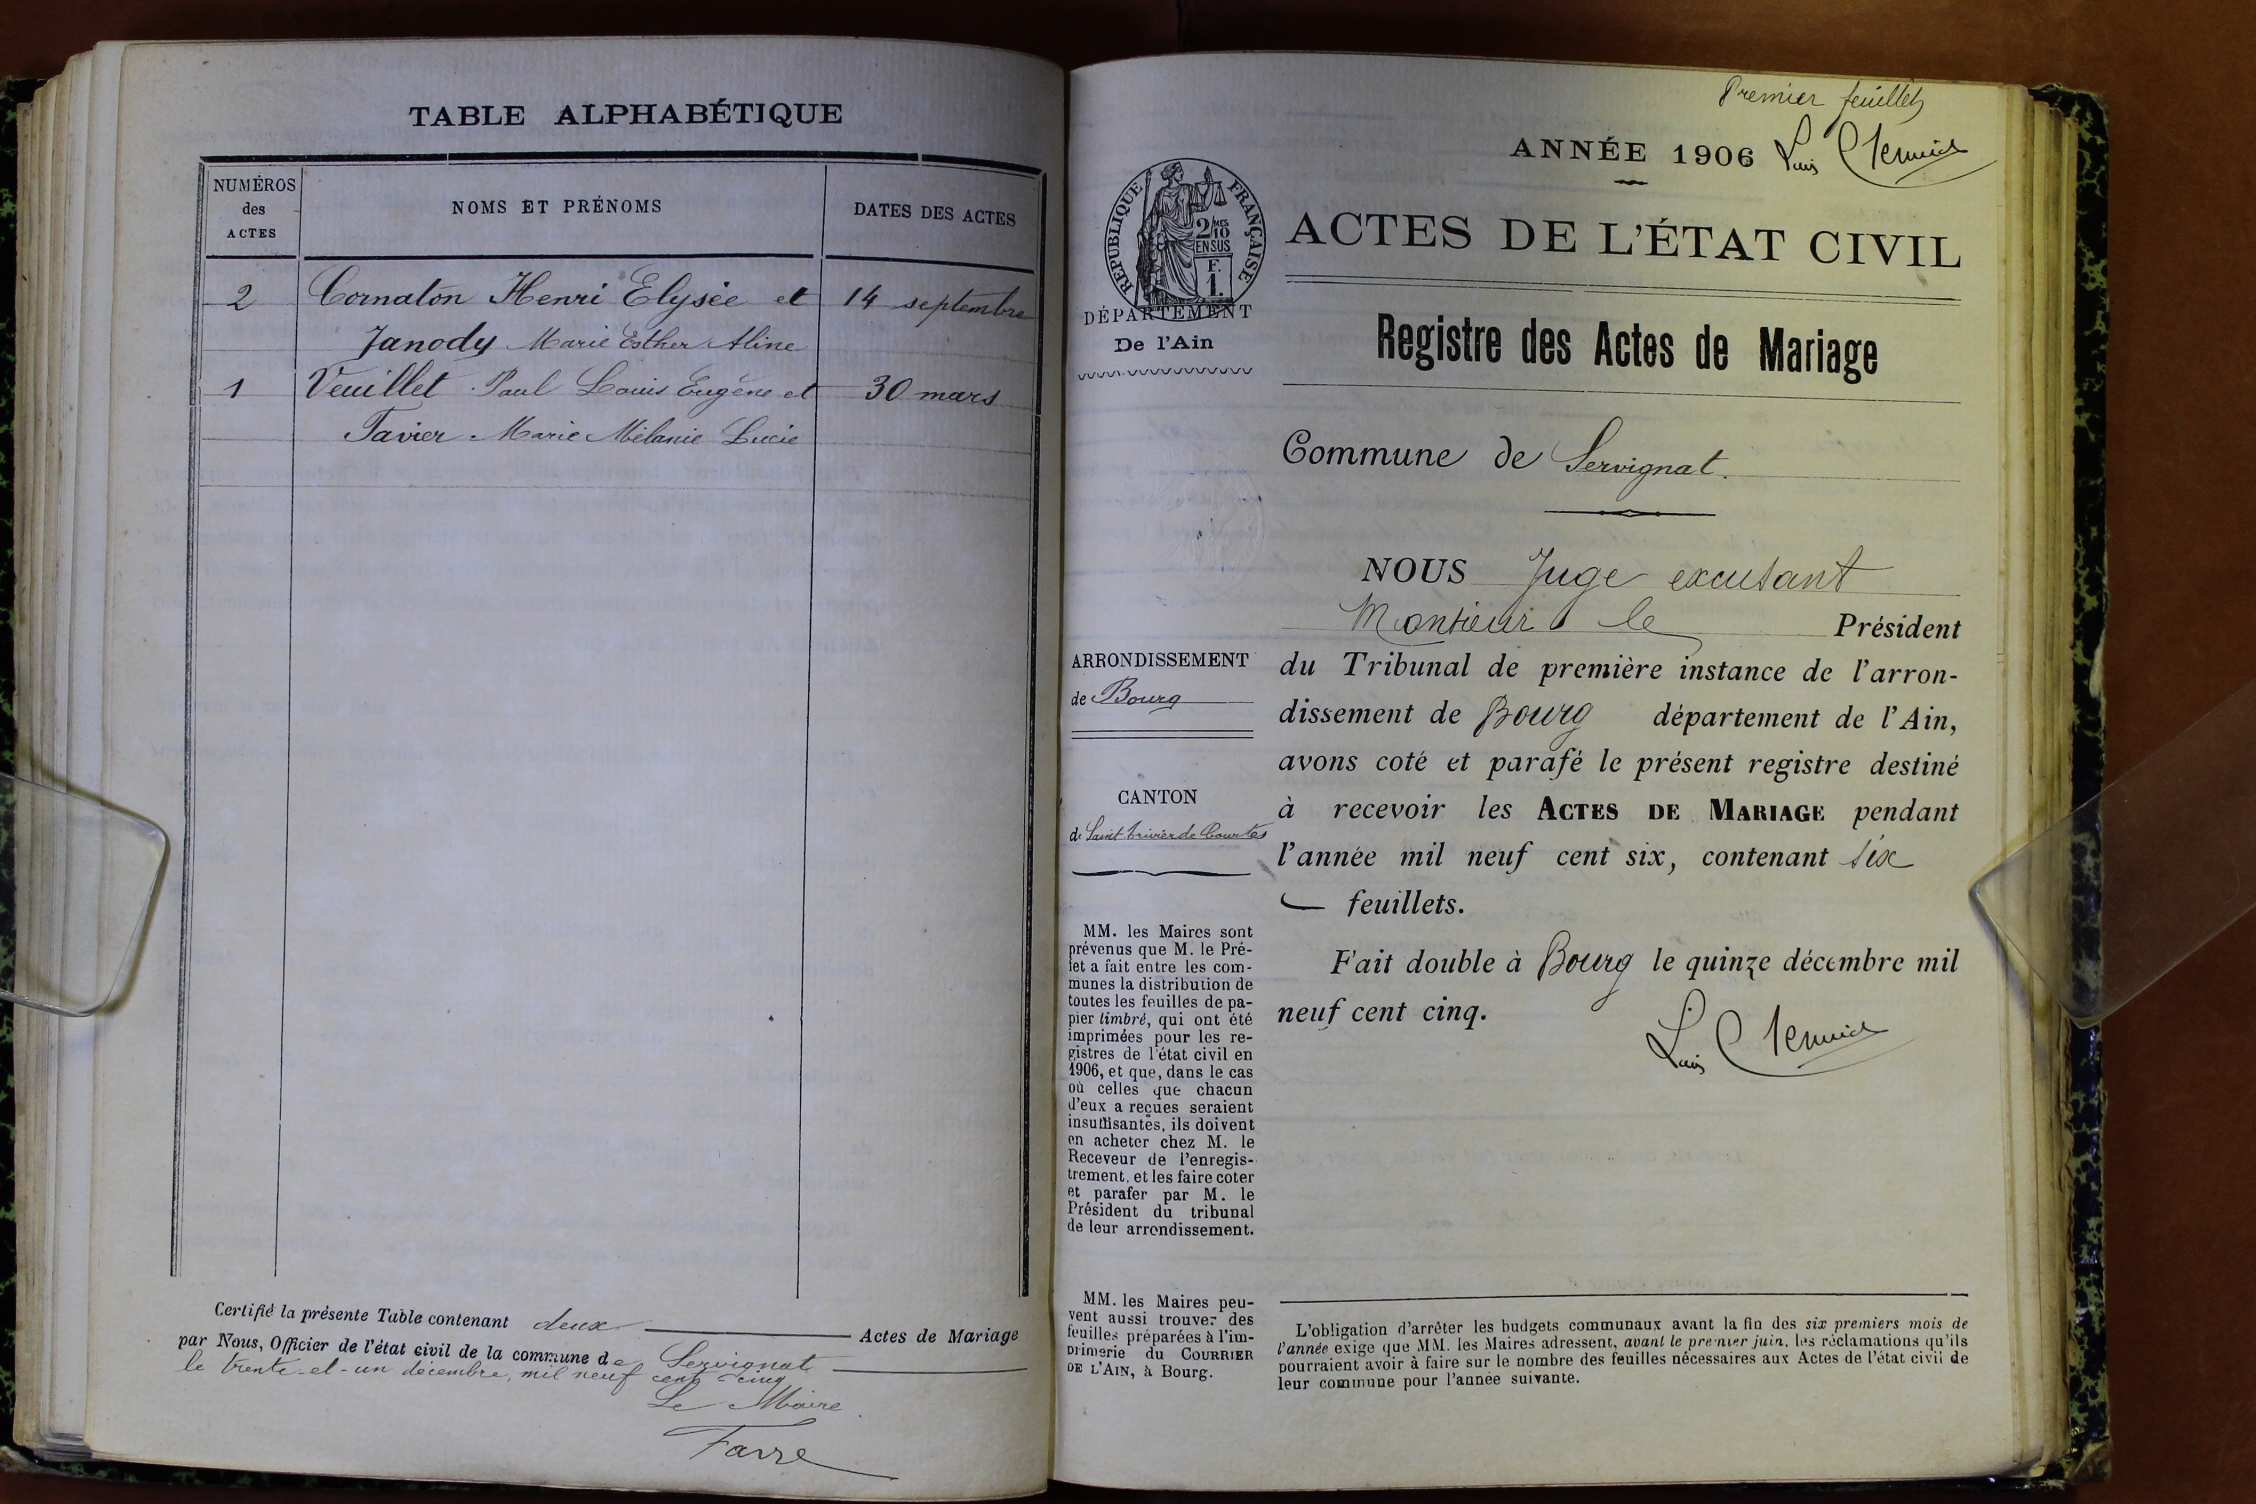 TABLE ALPHABÉTIQUE
NUMÉROS
des
ACTES
NOMS ET PRÉNOMS
DATES DES ACTES
2 Cornaton Henri Elysée et 14 septembre
Janody Marie Esther Aline
1 Veuillet Paul Louis Eugène et 30 mars
Tavier Marie Mélanie Lucie
Certifié la présente Table contenant deux Actes de Mariage
par Nous, Officier de l'état civil de la commune de Servignat
le trente-et-un décembre, mil neuf cent cinq
Le Maire
Favre
Premier feuillet
ANNÉE 1906 Louis
RÉPUBLIQUE FRANÇAISE
2/10 MES
EN SUS
F.
1.
DÉPARTEMENT
De l'Ain
ARRONDISSEMENT
de Bourg
CANTON
de Saint Trivier de Courtes
MM. les Maires sont
prévenus que M. le Pré-
fet a fait entre les com-
munes la distribution de
toutes les feuilles de pa-
pier timbré, qui ont été
imprimées pour les re-
gistres de l'état civil en
1906, et que, dans le cas
où celles que chacun
d'eux a reçues seraient
insuffisantes, ils doivent
en acheter chez M. le
Receveur de l'enregis-
trement, et les faire coter
et parafer par M. le
Président du tribunal
de leur arrondissement.
MM. les Maires peu-
vent aussi trouver des
feuilles préparées à l'im-
primerie du COURRIER
DE L'AIN, à Bourg.
ACTES DE L'ÉTAT CIVIL
Registre des Actes de Mariage
Commune de Servignat.
NOUS Juge excusant
Monsieur le Président
du Tribunal de première instance de l'arron-
dissement de Bourg département de l'Ain,
avons coté et parafé le présent registre destiné
à recevoir les ACTES DE MARIAGE pendant
l'année mil neuf cent six, contenant six
feuillets.
Fait double à Bourg le quinze décembre mil
neuf cent cinq.
Louis
L'obligation d'arrêter les budgets communaux avant la fin des six premiers mois de
l'année exige que MM. les Maires adressent, avant le premier juin, les réclamations qu'ils
pourraient avoir à faire sur le nombre des feuilles nécessaires aux Actes de l'état civil de
leur commune pour l'année suivante.